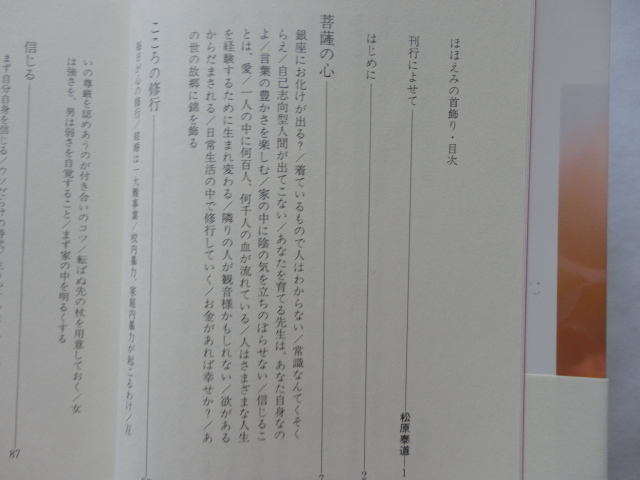 ほほえみの首飾り・目次
刊行によせて 松原泰道 1
はじめに 2
菩薩の心 7
銀座にお化けが出る?/着ているもので人はわからない/常識なんてくそく
らえ/自己志向型人間が出てこない/あなたを育てる先生は、あなた自身なの
よ/言葉の豊かさを楽しむ/家の中に陰の気を立ちのぼらせない/信じるこ
とは、愛/一人の中に何百人、何千人の血が流れている/人はさまざまな人生
を経験するために生まれ変わる/隣りの人が観音様かもしれない/欲がある
からだまされる/日常生活の中で修行していく/お金があれば幸せか?/あ
の世の故郷に錦を飾る
こころの修行
毎日が心の修行/結婚は一大難事業/校内暴力、家庭内暴力が起こるわけ/互
いの尊厳を認めあうのが付き合いのコツ/転ばぬ先の杖を用意しておく/女
は強さを、男は弱さを自覚すること/まず家の中を明るくする
信じる 87
まず自分自身を信じる/ウソだらけの時代